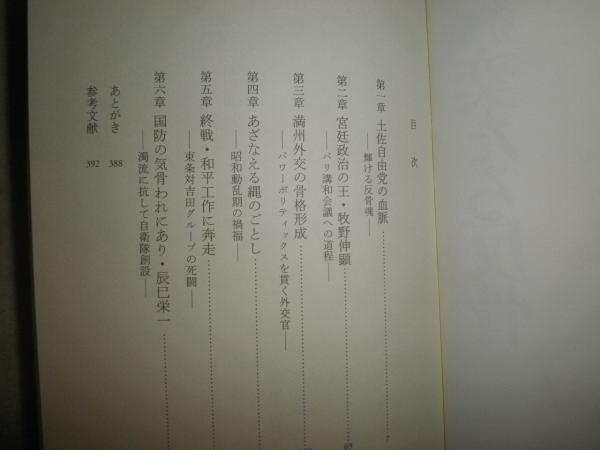 目次
第一章 土佐自由党の血脈……7
──輝ける反骨魂──
第二章 宮廷政治の王・牧野伸顕……69
──パリ講和会議への道程──
第三章 満州外交の骨格形成……
──パワーポリティックスを貫く外交官──
第四章 あざなえる縄のごとし……
──昭和動乱期の禍福──
第五章 終戦・和平工作に奔走……
──東条対吉田グループの死闘──
第六章 国防の気骨われにあり・辰巳栄一……
──濁流に抗して自衛隊創設──
あとがき 388
参考文献 392